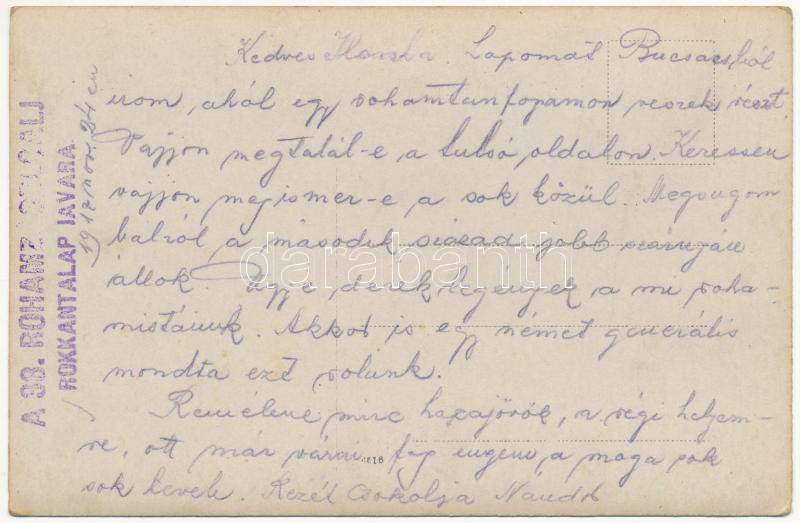 Kedves Ilonka Lapomat Bucsacsból
irom, ahól egy rohamtanfojamon veszek részt.
Vajjon megtalál-e a tulsó oldalon. Keressen
vajjon megismer-e a sok közül. Megsugom
balról a második század jobb szárnyán
állok. Ugye derék legények a mi roha-
mistáink. Akkor is egy német generális
mondta ezt rolunk.
Remélem mire hazajövök, a régi helyem-
re, ott már várni fog engem, a maga sok
sok levele. Kezét Csokolja Nándor
A 38. ROHAMZ
ROKKANTALAP JAVÁRA.
1917 nov. 24 én
darabanth
1916